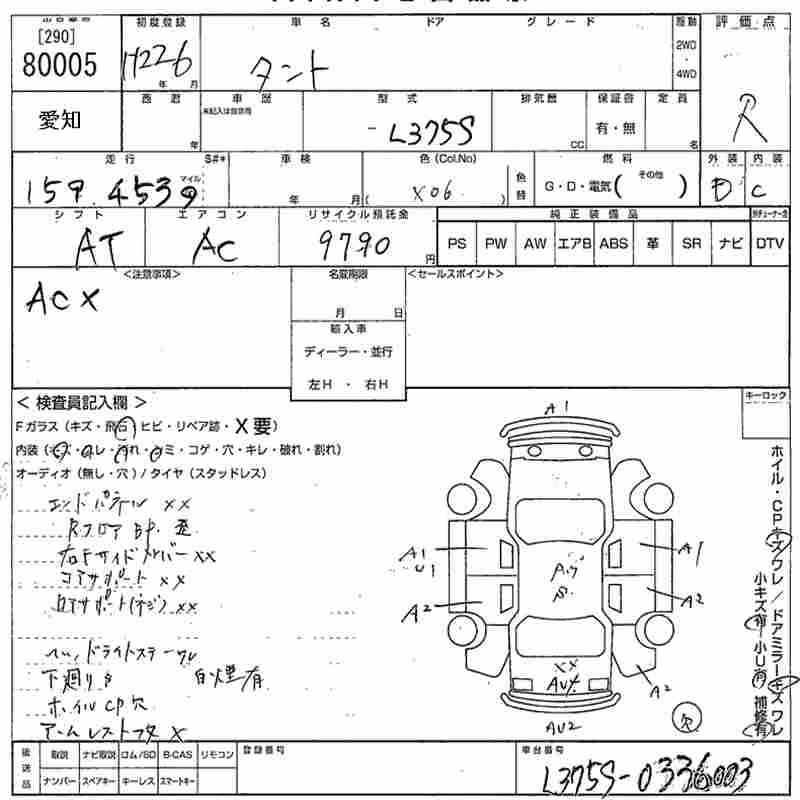 [290]
80005
愛知
初度登録
H22 6
年 月
車名
タント
ドア
グレード
駆動
2WD
・
4WD
評価点
R
西暦
年
車歴
未記入は自家用
型式
-L375S
排気量
CC
保証書
有・無
定員
名
走行
S#*
159,453
マイル
車検
年 月
色(Col.No)
( X06 )
色替
燃料
G・D・電気( その他 )
外装
D
内装
C
シフト
AT
エアコン
AC
リサイクル預託金
9790
円
純正装備品
PS PW AW エアB ABS 革 SR ナビ DTV
<注意事項>
ACX
名変期限
月 日
輸入車
ディーラー・並行
左H ・ 右H
<セールスポイント>
<検査員記入欄>
キーロック
Fガラス(キズ・飛石 ヒビ・リペア跡・X要)
内装(キズ・スレ・汚れ・シミ・コゲ・穴・キレ・破れ・割れ)
オーディオ(無し・穴)/タイヤ(スタッドレス)
エンドパネル XX
RフロアBP. 歪
右FサイドメンバーXX
コアサポート XX
ロアサポート(ネジ) XX
下廻りサ
白煙有
ホイルCP欠
アームレストフタ X
A1
A1
U1
A1
A2
A2
A2
S.
XX
AUX
AU2
欠
ホイル・CPキズワレ/ドアミラーキズワレ
小キズ有 小U有 補修有
後送品
取説 ナビ取説 ロム/SD B-CAS リモコン
ナンバー スペアキー キーレス スマートキー
登録番号
車台番号
L375S-0336003